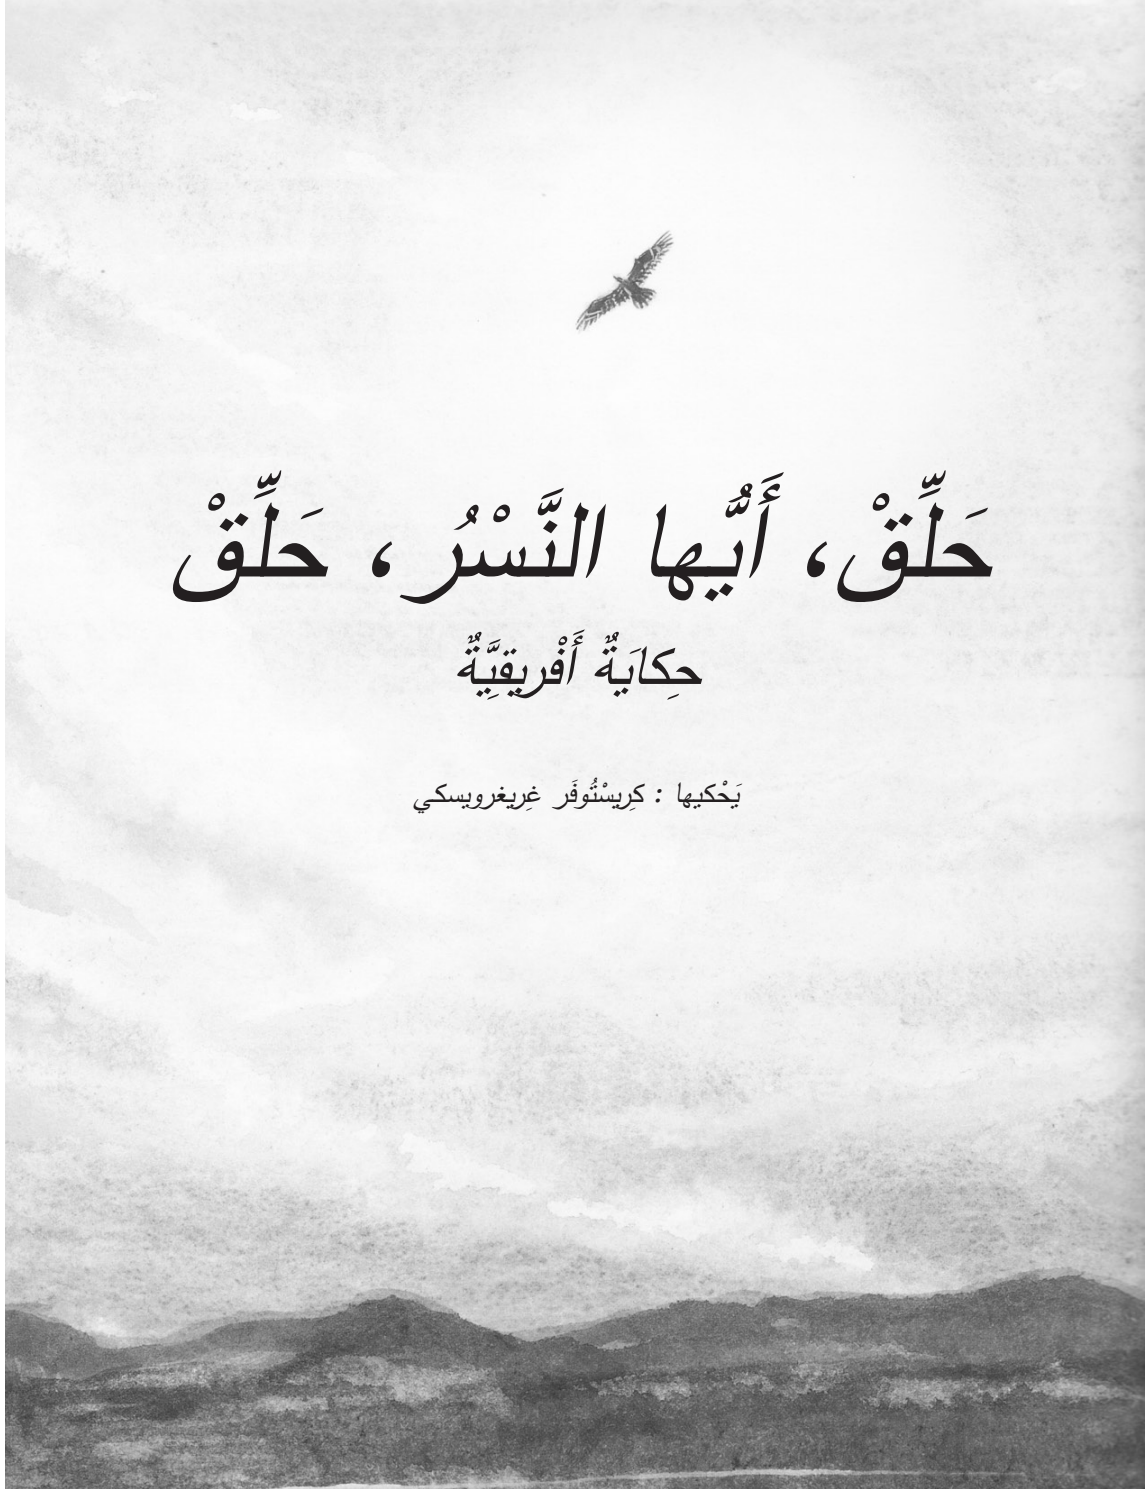 حَلِّقْ، أَيُّها النَّسْرُ، حَلِّقْ
حِكايَةٌ أَفْريقِيَّةٌ
يَحْكيها : كرِيسْتُوفَر غِريغرويسكي